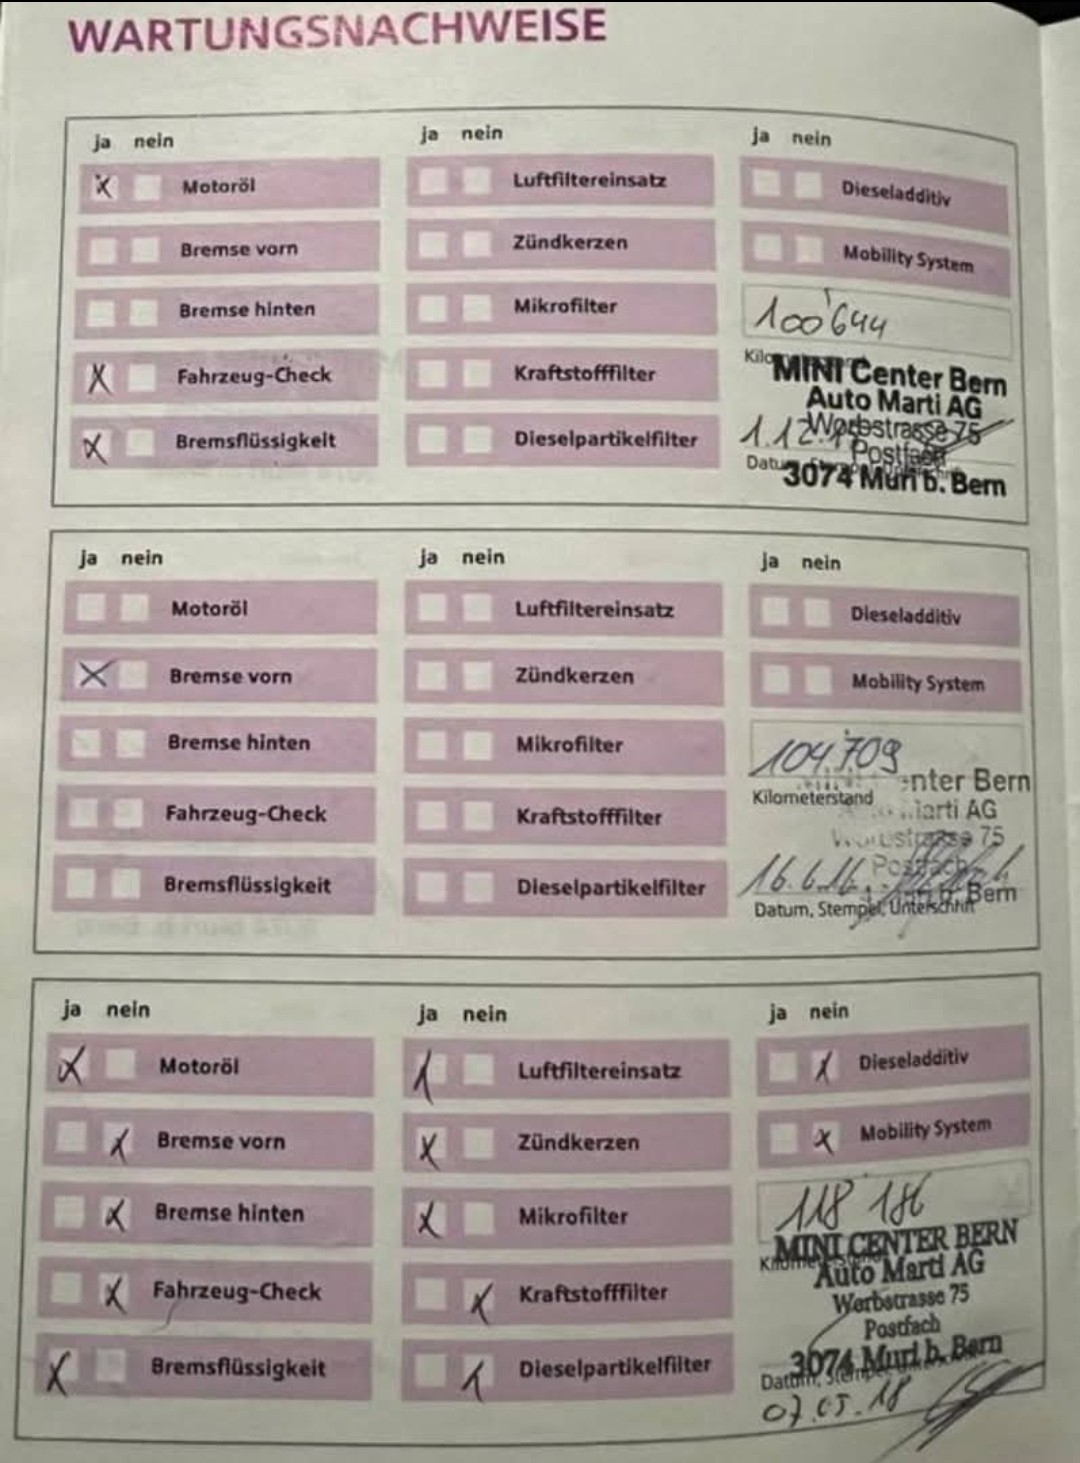 WARTUNGSNACHWEISE
ja nein
Motoröl
Bremse vorn
Bremse hinten
Fahrzeug-Check
Bremsflüssigkeit
ja nein
Luftfiltereinsatz
Zündkerzen
Mikrofilter
Kraftstofffilter
Dieselpartikelfilter
ja nein
Dieseladditiv
Mobility System
100'644
MINI Center Bern
Auto Marti AG
1.12.
Worbstrasse 75
Postfach
3074 Muri b. Bern
ja nein
Motoröl
Bremse vorn
Bremse hinten
Fahrzeug-Check
Bremsflüssigkeit
ja nein
Luftfiltereinsatz
Zündkerzen
Mikrofilter
Kraftstofffilter
Dieselpartikelfilter
ja nein
Dieseladditiv
Mobility System
104'709
Kilometerstand
enter Bern
Marti AG
Worbstrasse 75
Postfach
16.6.16
b. Bern
Datum, Stempel, Unterschrift
ja nein
Motoröl
Bremse vorn
Bremse hinten
Fahrzeug-Check
Bremsflüssigkeit
ja nein
Luftfiltereinsatz
Zündkerzen
Mikrofilter
Kraftstofffilter
Dieselpartikelfilter
ja nein
Dieseladditiv
Mobility System
118 186
MINI CENTER BERN
Auto Marti AG
Worbstrasse 75
Postfach
3074 Muri b. Bern
Datum, Stempel, Unterschrift
07.05.18